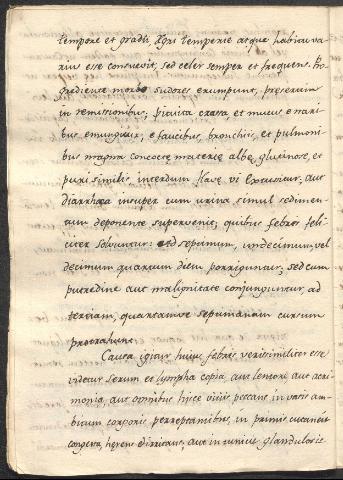 tempore et gradu, Ægri temperie atque habitu va-
rius esse consuevit, sed celer semper et frequens. Pro
grediente morbo sudores erumpunt, præsertim
in remissionibus; pituita crassa et mucus e nari
bus emungitur, e faucibus, bronchiis, et pulmoni
bus magna concoctæ materiæ albæ, glutinosæ, et
puri similis interdum flavæ vi excutitur, aut
diarrhæa insuper cum urina simul sedimen-
tum deponente supervenit; quibus febres feli
citer solvuntur: ad septimum, undecimum, vel
decimum quartum diem porriguntur, sed cum
putredine aut malignitate conjunguntur, ad
tertiam, quartamve septimanam cursum
protrahunt.
Causa igitur hujus febris verisimiliter esse
videtur serum et lympha copia, aut lentore, aut acri
monia, aut omnibus hisce vitiis peccans, in vasis am-
bitum corporis perreptantibus, in primis cutaneis
congesta, hærens, irritans, aut in tunicis glandulosis